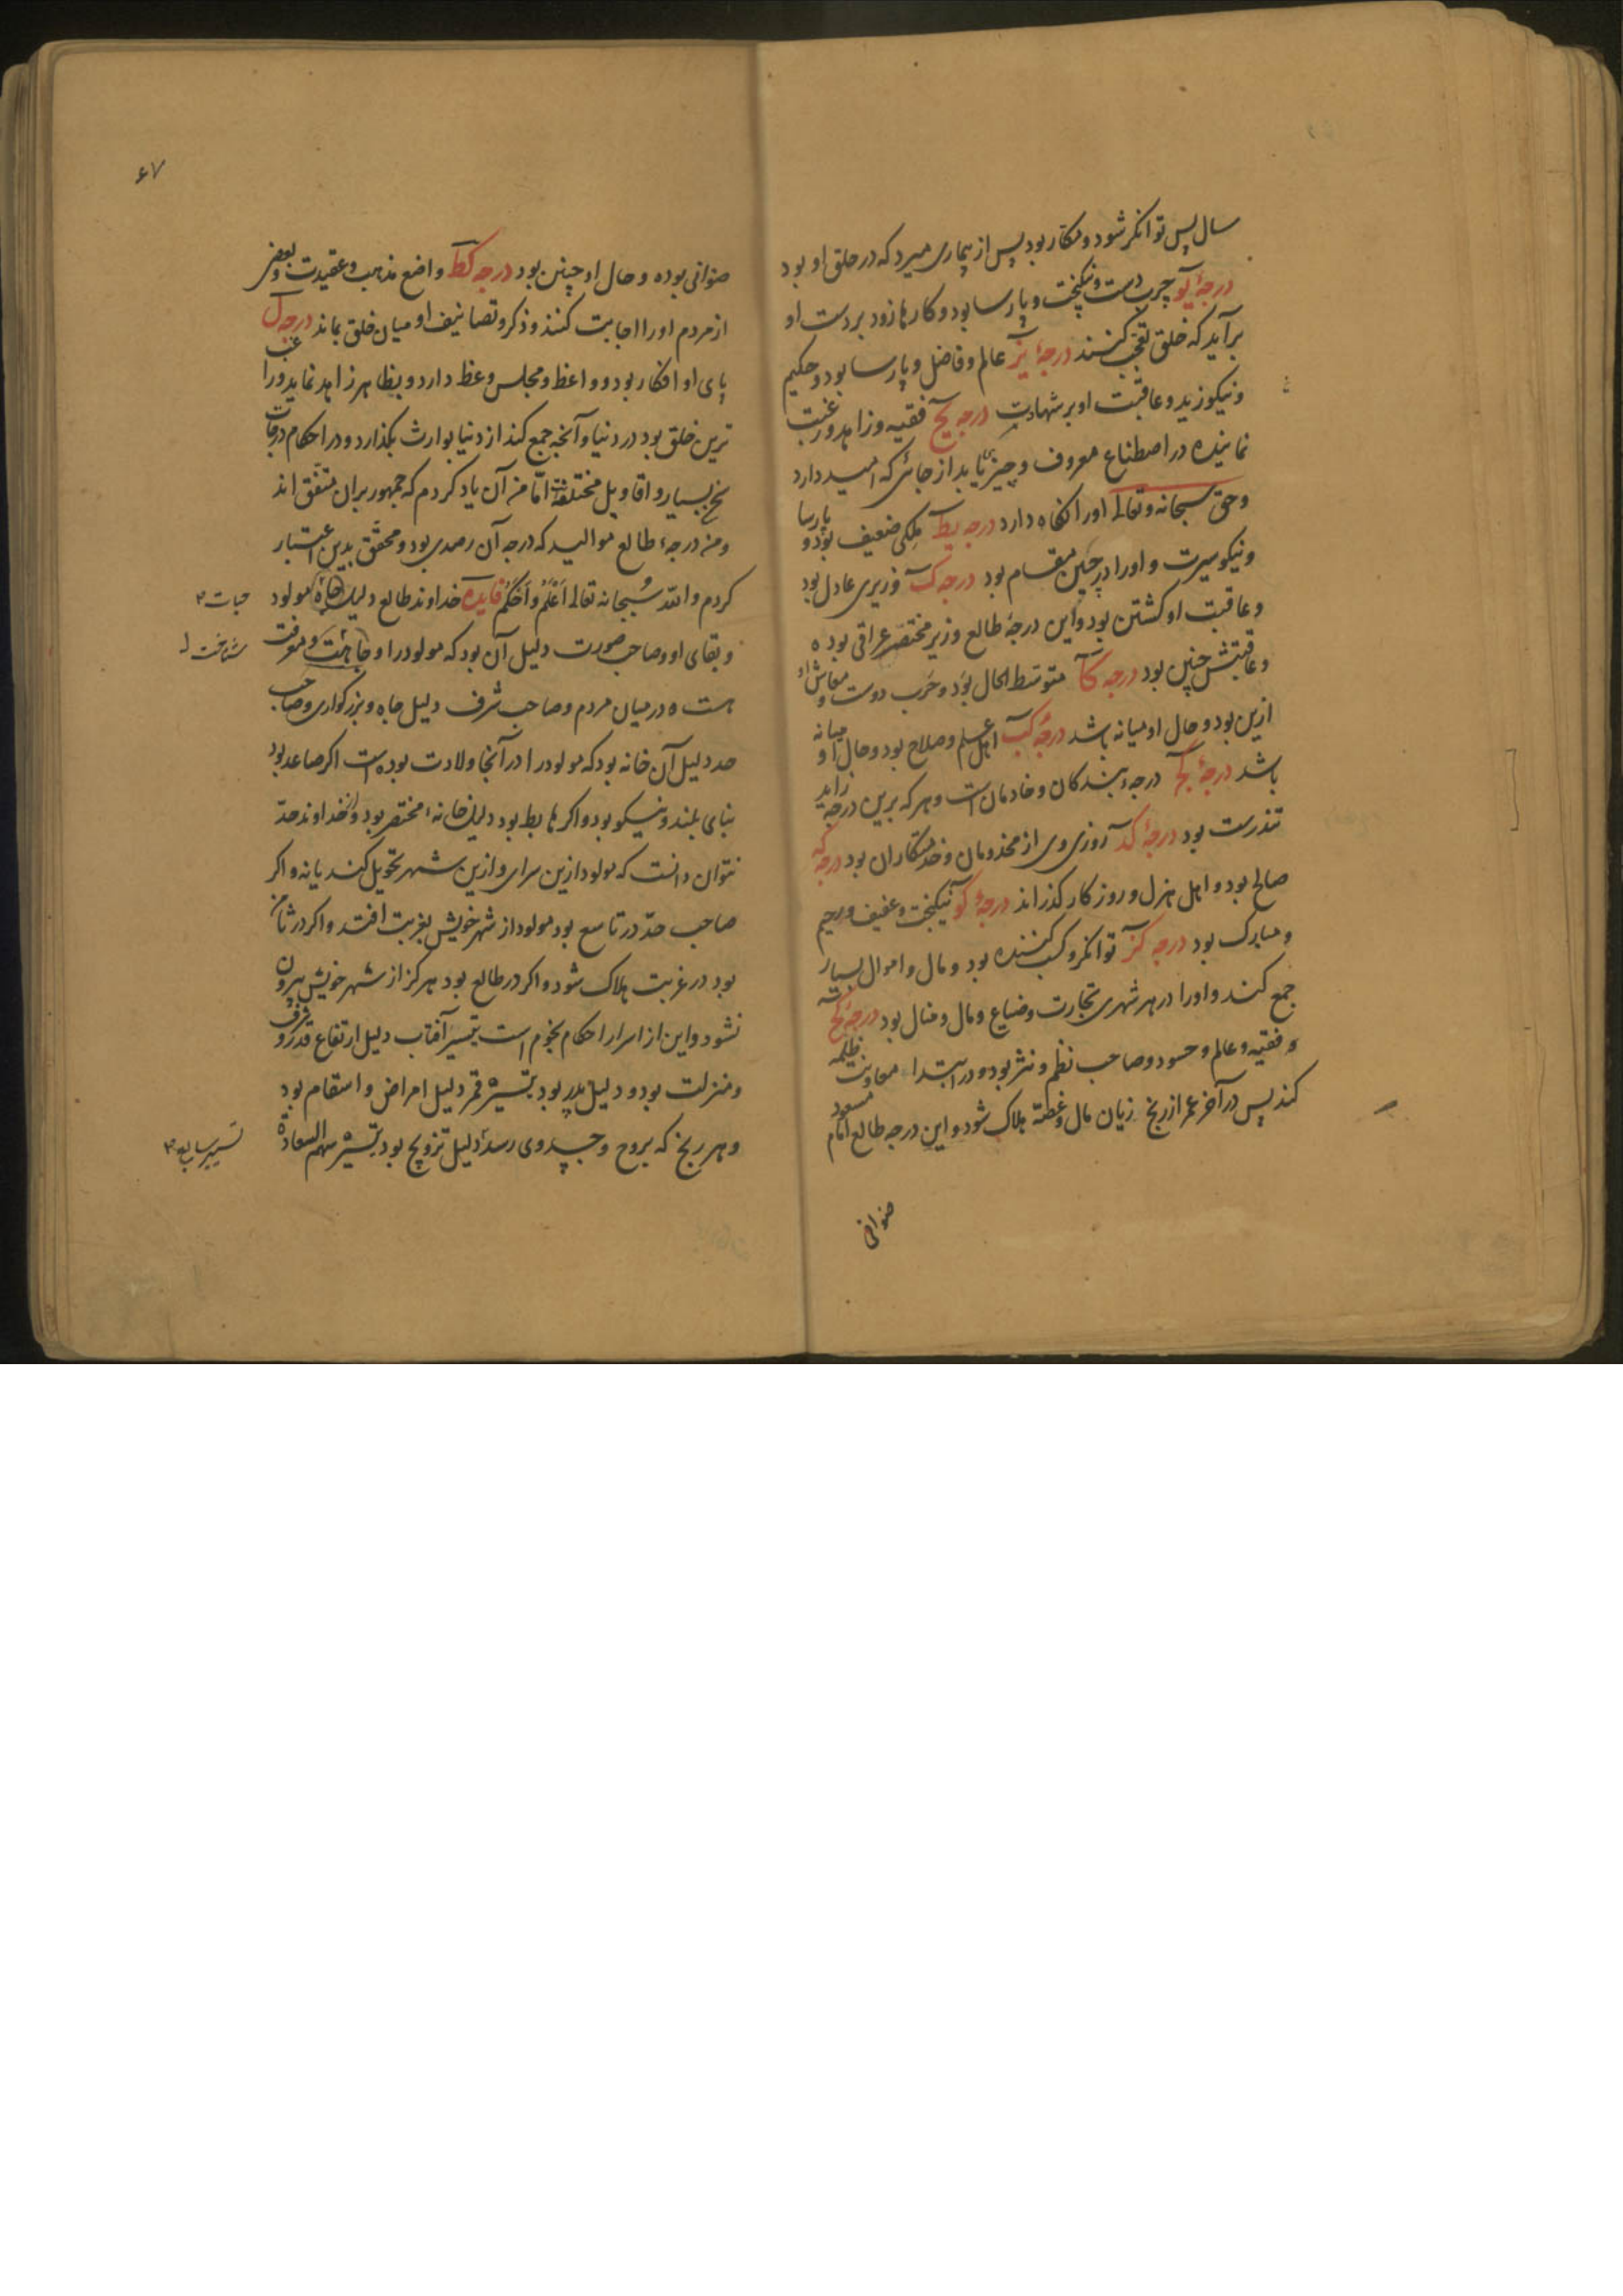 سال پس توانکر شود و مکار بود پس از بیماری میرد که در حلق او بود
درجهٔ یو چرب دست و نیکبخت و پارسا بود و کارها زود بر دست او
برآید که خلق تعجب کنند درجهٔ یز عالم و فاضل و پارسا بود و حکیم
و نیکو زید و عاقبت او بر شهادت درجه یح فقیه و زاهد و رغبت
نماینده در اصطناع معروف و چیزی یابد از جائی که امید دارد
و حق سبحانه و تعالی او را نکاه دارد درجه یط ملکی ضعیف بود و پارسا
و نیکو سیرت و او را در چین مقام بود درجه ک وزیری عادل بود
و عاقبت او کشتن بود و این درجهٔ طالع وزیر مختصر عراقی بوده
و عاقبتش چنین بود درجه کا متوسط الحال بود و حرب دوست و معاش او
ازین بود و حال او میانه باشد درجهٔ کب اهل علم و صلاح بود و حال او میانه
باشد درجهٔ کج درجهٔ بندکان و خادمان است و هر که برین درجه زاید
تندرست بود درجهٔ کد روزی وی از مخدومان و خدمتکاران بود درجه که
صالح بود و اهل هزل و روزکار کذراند درجهٔ کو نیکبخت و عفیف و رحیم
و مبارک بود درجه کز توانکر و کسب کننده بود و مال و اموال بسیار
جمع کند و او را در هر شهری تجارت و ضیاع و مال و منال بود درجهٔ کح
فقیه و عالم و حسود و صاحب نظم و نثر بود و در ابتدا معاونت ظلمه
کند پس در آخر عمر از رنج زیان مال و غصّه هلاک شود و این درجه طالع امام مسعود
صوانی
۶۷
صوانی بوده و حال او چنین بود درجه کط واضع مذاهب و عقیدت و بعضی
از مردم او را اجابت کنند و ذکر و تصانیف او میان خلق بماند درجه ل
پای او افکار بود و واعظ و مجلس وعظ دارد و بظاهر زاهد نماید و راغب
ترین خلق بود در دنیا و آنچه جمع کند از دنیا بوارث بکذارد و در احکام درجات
نسخ بسیار و اقاویل مختلفست امّا من آن یاد کردم که جمهور بران متفق اند
و من درجهٔ طالع موالید که درجه آن رصدی بود و محقق بدین اعتبار
کردم و الله سبحانه تعالی اعلم و احکم فایده خداوند طالع دلیل جاه مولود
حیات
و بقای او و صاحب صورت دلیل آن بود که مولود را وجاهت و معرفت
شناخت
هست ه در میان مردم و صاحب شرف دلیل جاه و بزرکواری و صاحب
حد دلیل آن خانه بود که مولود را در آنجا ولادت بوده است اکر صاعد بود
بنای بلند و نیکو بود و اکر هابط بود دلیل خانهٔ مختصر بود و از خداوند حدّ
نتوان دانست که مولود ازین سرای و ازین شهر تحویل کند یا نه و اکر
صاحب حدّ در تاسع بود مولود از شهر خویش بغربت افتد و اکر در ثامن
بود در غربت هلاک شود و اکر در طالع بود هرکز از شهر خویش بیرون
نشود و این از اسرار احکام نجوم است تسییر آفتاب دلیل ارتفاع قدر و شرف
و منزلت بود و دلیل پدر بود تسییر قمر دلیل امراض و اسقام بود
و هر رنج که بروح و جسد وی رسد دلیل تزویج بود تسییر سهم السعادة